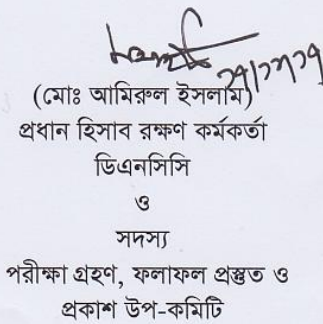 (মোঃ আমিরুল ইসলাম)
প্রধান হিসাব রক্ষণ কর্মকর্তা
ডিএনসিসি
ও
সদস্য
পরীক্ষা গ্রহণ, ফলাফল প্রস্তুত ও
প্রকাশ উপ-কমিটি